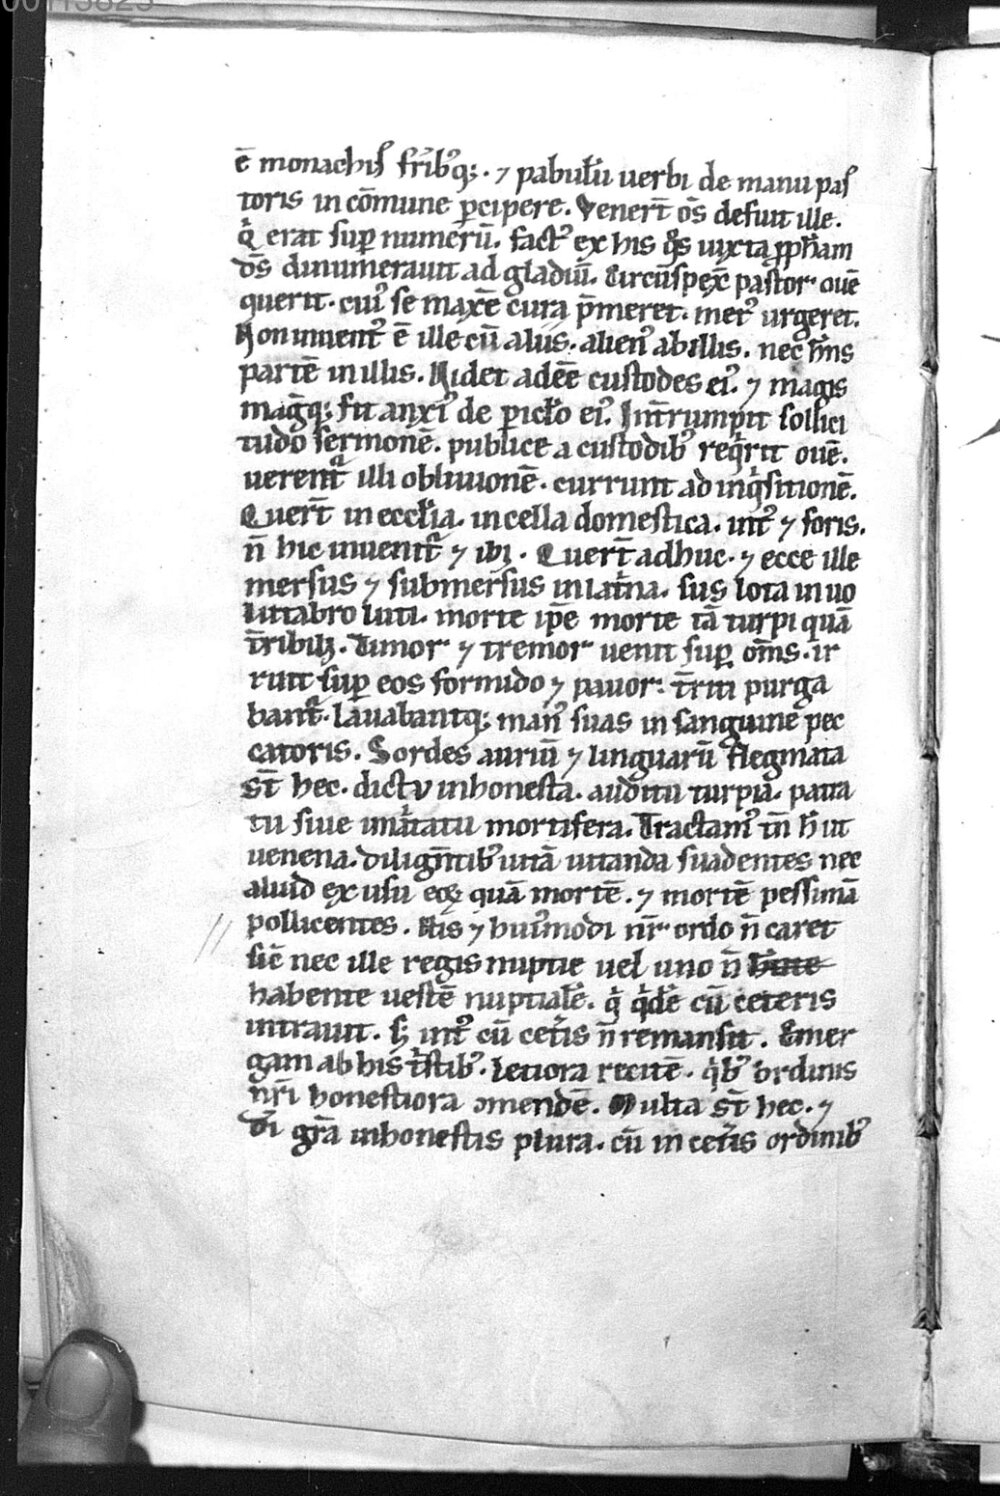 ē monachis fr̄ibꝰq;. ⁊ pabulū uerbi de manu pas
toris in cōmune ꝑcipere. Venerт̄ ōs defuit ille.
q̇ erat suꝑ numerū. factꝰ ex his q̊s iuxta ꝓph̄am
dn̄s dinumerauit ad gladiū. Circūspex̄ pastor ouē
querit. cuiꝰ se maxīe cura p̄meret. metꝰ urgeret.
Non inuentꝰ ē ille cū aliis. alienꝰ ab illis. nec h̄ns
partē in illis. Uidet adēe custodes eiꝰ. ⁊ magis
magisq; fit anxiꝰ de ꝑic̄lo eiꝰ. Int̄rumpit sollici
tudo sermonē. publice a custodibꝰ req̇rit ouē.
uerent̄ illi obliuionē. currunt ad inq̇sitionē.
Quer̄t in eccl̄ia. in cella domestica. intꝰ ⁊ foris.
n̄ hic inuenit̄ ⁊ ibi. Quer̄t adhuc. ⁊ ecce ille
mersus ⁊ submersus in lat̄na. sus lota in uo
lutabro luti. morte ip̄e morte tā turpi quā
t̄ribili. Timor ⁊ tremor uenit suꝑ om̄s. ir
ruit suꝑ eos formido ⁊ pauor. t̄riti purga
bant̄. lauabantq; manꝰ suas in sanguine pec
catoris. Sordes auriū ⁊ linguarū flegmata
st̄ hec. dictu inhonesta. auditu turpia. patra
tu siue imitatu mortifera. Tractamꝰ tn̄ h̄ ut
uenena. diligentibꝰ uitā uitanda suadentes nec
aliud ex usu eoꝝ quā mortē. ⁊ mortē pessimā
pollicentes. His ⁊ huiꝰmodi nr̄ ordo n̄ caret
sic̄ nec ille regis nuptie uel uno n̄
habente uestē nuptialē. q̇ q̇dē cū ceteris
intrauit. s; intꝰ cū cet̄is n̄ remansit. Emer
gam ab his t̄stibꝰ. letiora recitē. q̇bꝰ ordinis
nr̄i honestiora ɔmendē. Multa st̄ hec. ⁊
dī gr̄a inhonestis plura. cū in cet̄is ordinibꝰ